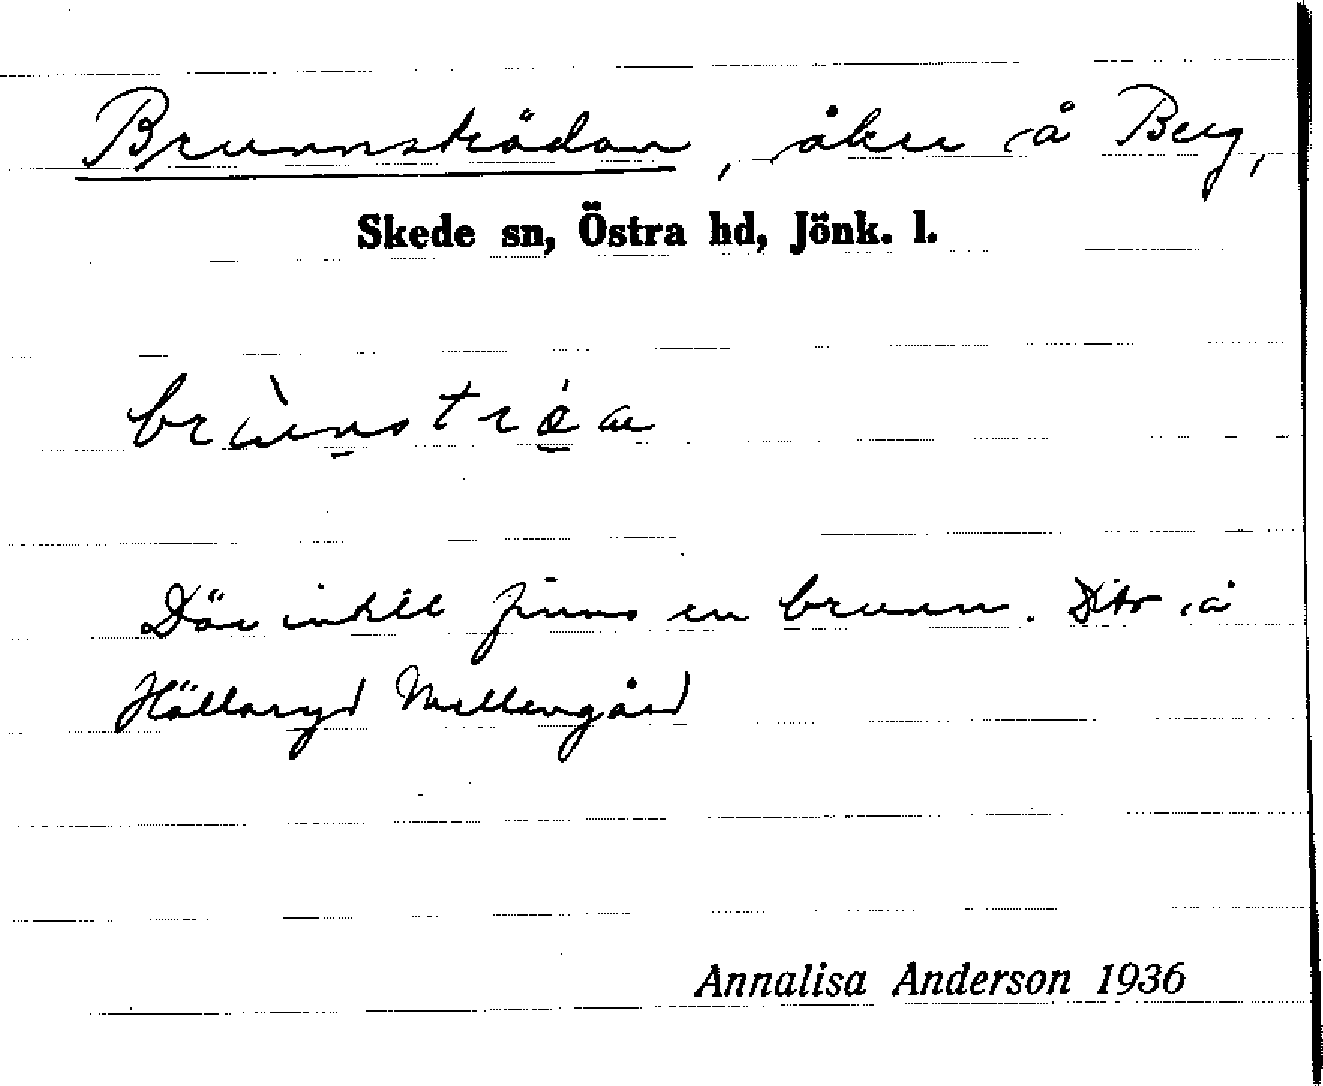 Brunnsträdan, åker å Berg,
Skede sn, Östra hd, Jönk. l.
Där intill finns en brunn. Dito å
Hällaryd Mellangård
Annalisa Anderson 1936